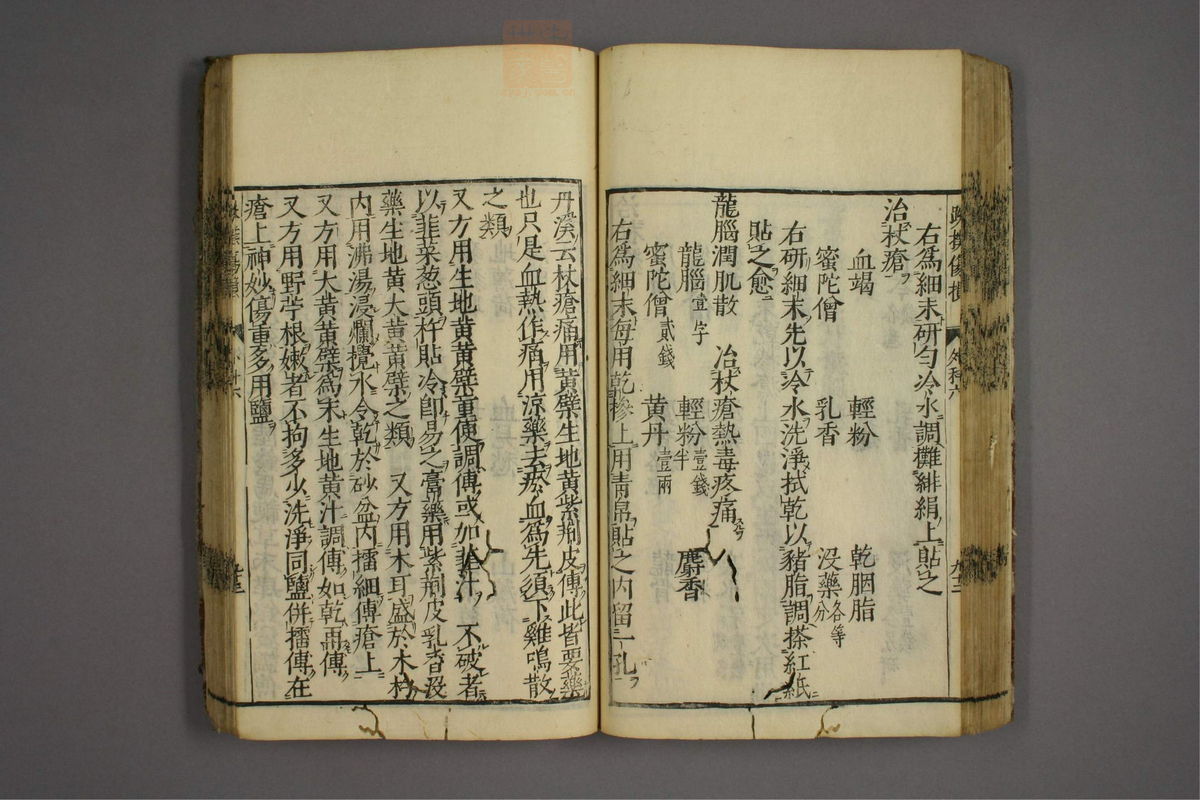 右爲細末研勻冷水調攤緋絹上貼之
治杖瘡
血竭 輕粉 乾胭脂
蜜陀僧 乳香 沒藥各等分
右研細末先以冷水洗淨拭乾以豬脂調搽紅紙
貼之愈
龍腦潤肌散 治杖瘡熱毒疼痛
龍腦壹字 輕粉壹錢半 麝香
蜜陀僧貳錢 黃丹壹兩
右爲細末每用乾摻上用青帛貼之內留一孔
丹溪云杖瘡痛用黃蘗生地黃紫荊皮傅此皆要藥
也只是血熱作痛用涼藥去瘀血爲先須下雞鳴散
之類
又方用生地黃黃蘗童便調傅或加韭汁 不破者
以韭菜葱頭杵貼冷卽易之膏藥用紫荊皮乳香沒
藥生地黃大黃黃蘗之類 又方用木耳盛於木杓
內用沸湯浸爛攪水令乾於砂盆內擂細傅瘡上
又方用大黃黃蘗爲末生地黃汁調傅如乾再傅
又方用野苧根嫩者不拘多少洗淨同鹽併擂傅在
瘡上神妙傷重多用鹽